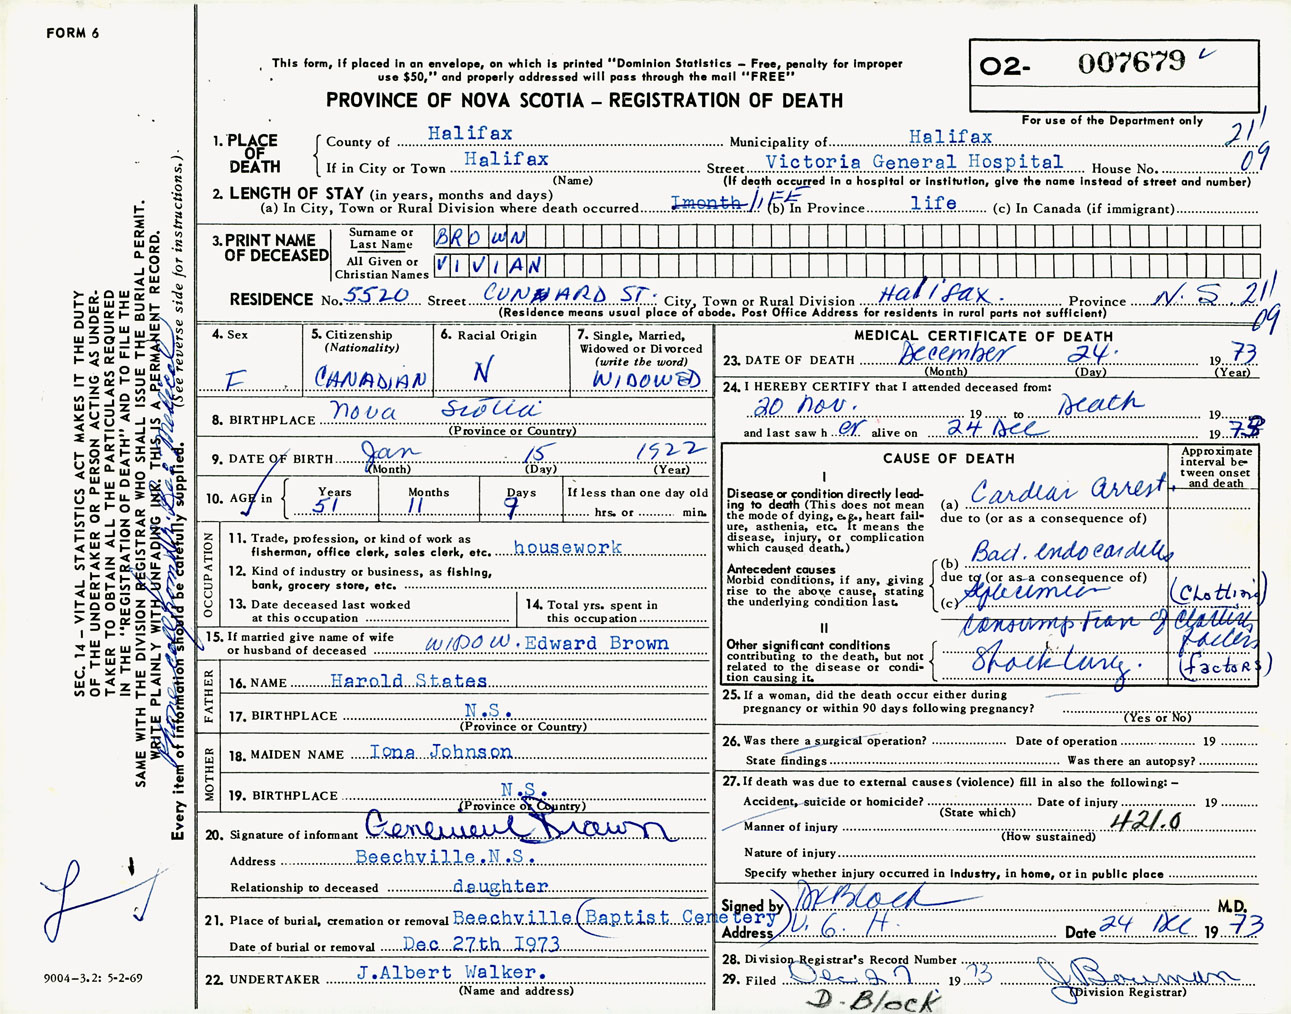 FORM 6
This form, if placed in an envelope, on which is printed "Dominion Statistics – Free, penalty for improper
use $50," and properly addressed will pass through the mail "FREE"
O2- 007679
PROVINCE OF NOVA SCOTIA – REGISTRATION OF DEATH
For use of the Department only
1. PLACE OF DEATH
County of Halifax Municipality of Halifax 21
If in City or Town Halifax Street Victoria General Hospital House No. 09
(Name) (If death occurred in a hospital or institution, give the name instead of street and number)
2. LENGTH OF STAY (in years, months and days)
(a) In City, Town or Rural Division where death occurred 1month LIFE (b) In Province life (c) In Canada (if immigrant)
3. PRINT NAME OF DECEASED
Surname or Last Name BROWN
All Given or Christian Names VIVIAN
RESIDENCE No. 5520 Street CUNARD ST. City, Town or Rural Division Halifax. Province N.S. 21
(Residence means usual place of abode. Post Office Address for residents in rural parts not sufficient) 09
4. Sex
F
5. Citizenship
(Nationality)
CANADIAN
6. Racial Origin
N
7. Single, Married,
Widowed or Divorced
(write the word)
WIDOWED
8. BIRTHPLACE Nova Scotia
(Province or Country)
9. DATE OF BIRTH Jan 15 1922
(Month) (Day) (Year)
10. AGE in Years 51 Months 11 Days 9 If less than one day old
hrs. or min.
OCCUPATION
11. Trade, profession, or kind of work as
fisherman, office clerk, sales clerk, etc. housework
12. Kind of industry or business, as fishing,
bank, grocery store, etc.
13. Date deceased last worked
at this occupation
14. Total yrs. spent in
this occupation
15. If married give name of wife
or husband of deceased WIDOW. Edward Brown
FATHER
16. NAME Harold States
17. BIRTHPLACE N.S.
(Province or Country)
MOTHER
18. MAIDEN NAME Iona Johnson
19. BIRTHPLACE N.S.
(Province or Country)
20. Signature of informant Brown
Address Beechville.N.S.
Relationship to deceased daughter
21. Place of burial, cremation or removal Beechville (Baptist Cemetery)
Date of burial or removal Dec 27th 1973
22. UNDERTAKER J.Albert Walker.
(Name and address)
MEDICAL CERTIFICATE OF DEATH
23. DATE OF DEATH December 24. 19 73
(Month) (Day) (Year)
24. I HEREBY CERTIFY that I attended deceased from:
20 Nov. 19 to Death 19
and last saw h er alive on 24 Dec 19 73
CAUSE OF DEATH
Approximate
interval be-
tween onset
and death
I
Disease or condition directly lead-
ing to death (This does not mean
the mode of dying, e.g., heart fail-
ure, asthenia, etc. It means the
disease, injury, or complication
which caused death.)
(a) Cardiac Arrest
due to (or as a consequence of)
Antecedent causes
Morbid conditions, if any, giving
rise to the above cause, stating
the underlying condition last.
(b) Bact. endocarditis
due to (or as a consequence of)
(c) (Clotting)
consumption of clotting
factors
II
Other significant conditions
contributing to the death, but not
related to the disease or condi-
tion causing it.
Shock Lung. (factors)
25. If a woman, did the death occur either during
pregnancy or within 90 days following pregnancy?
(Yes or No)
26. Was there a surgical operation? Date of operation 19
State findings Was there an autopsy?
27. If death was due to external causes (violence) fill in also the following: –
Accident, suicide or homicide? Date of injury 19
(State which)
Manner of injury 421.0
(How sustained)
Nature of injury
Specify whether injury occurred in industry, in home, or in public place
Signed by D Block M.D.
Address V. G. H. Date 24 Dec 19 73
28. Division Registrar's Record Number
29. Filed Dec 27 19 73 J Bowman
(Division Registrar)
D. Block
SEC. 14 – VITAL STATISTICS ACT MAKES IT THE DUTY
OF THE UNDERTAKER OR PERSON ACTING AS UNDER-
TAKER TO OBTAIN ALL THE PARTICULARS REQUIRED
IN THE "REGISTRATION OF DEATH" AND TO FILE THE
SAME WITH THE DIVISION REGISTRAR WHO SHALL ISSUE THE BURIAL PERMIT.
WRITE PLAINLY WITH UNFADING INK. THIS IS A PERMANENT RECORD.
Every item of information should be carefully supplied. (See reverse side for instructions.)
9004–3.2: 5-2-69